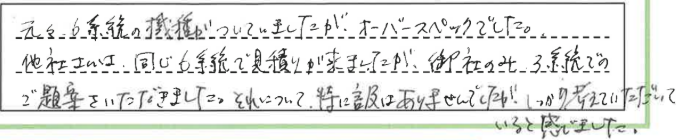 元々、6系統の機種がついていましたが、オーバースペックでした。
他社さんは、同じ6系統で見積りが来ましたが、御社のみ3系統での
ご題案をいただきました。それについて、特に言及はありませんでしたが、しっかり考えていただいて
いると感じました。